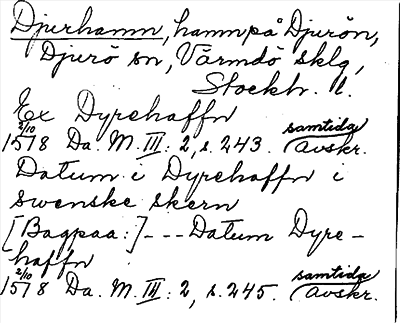 Djurhamn, hamn på Djurön,
Djurö sn, Värmdö sklg,
Stockh. l.
Ex Dyrehaffn
2/10 1518 Da. M. III: 2, s. 243. samtida avskr.
Datum i Dyrehaffn i
swenske skern
[Bagpaa:] --- Datum Dyre-
haffn
2/10 1518 Da. M. III: 2, s. 245. samtida avskr.